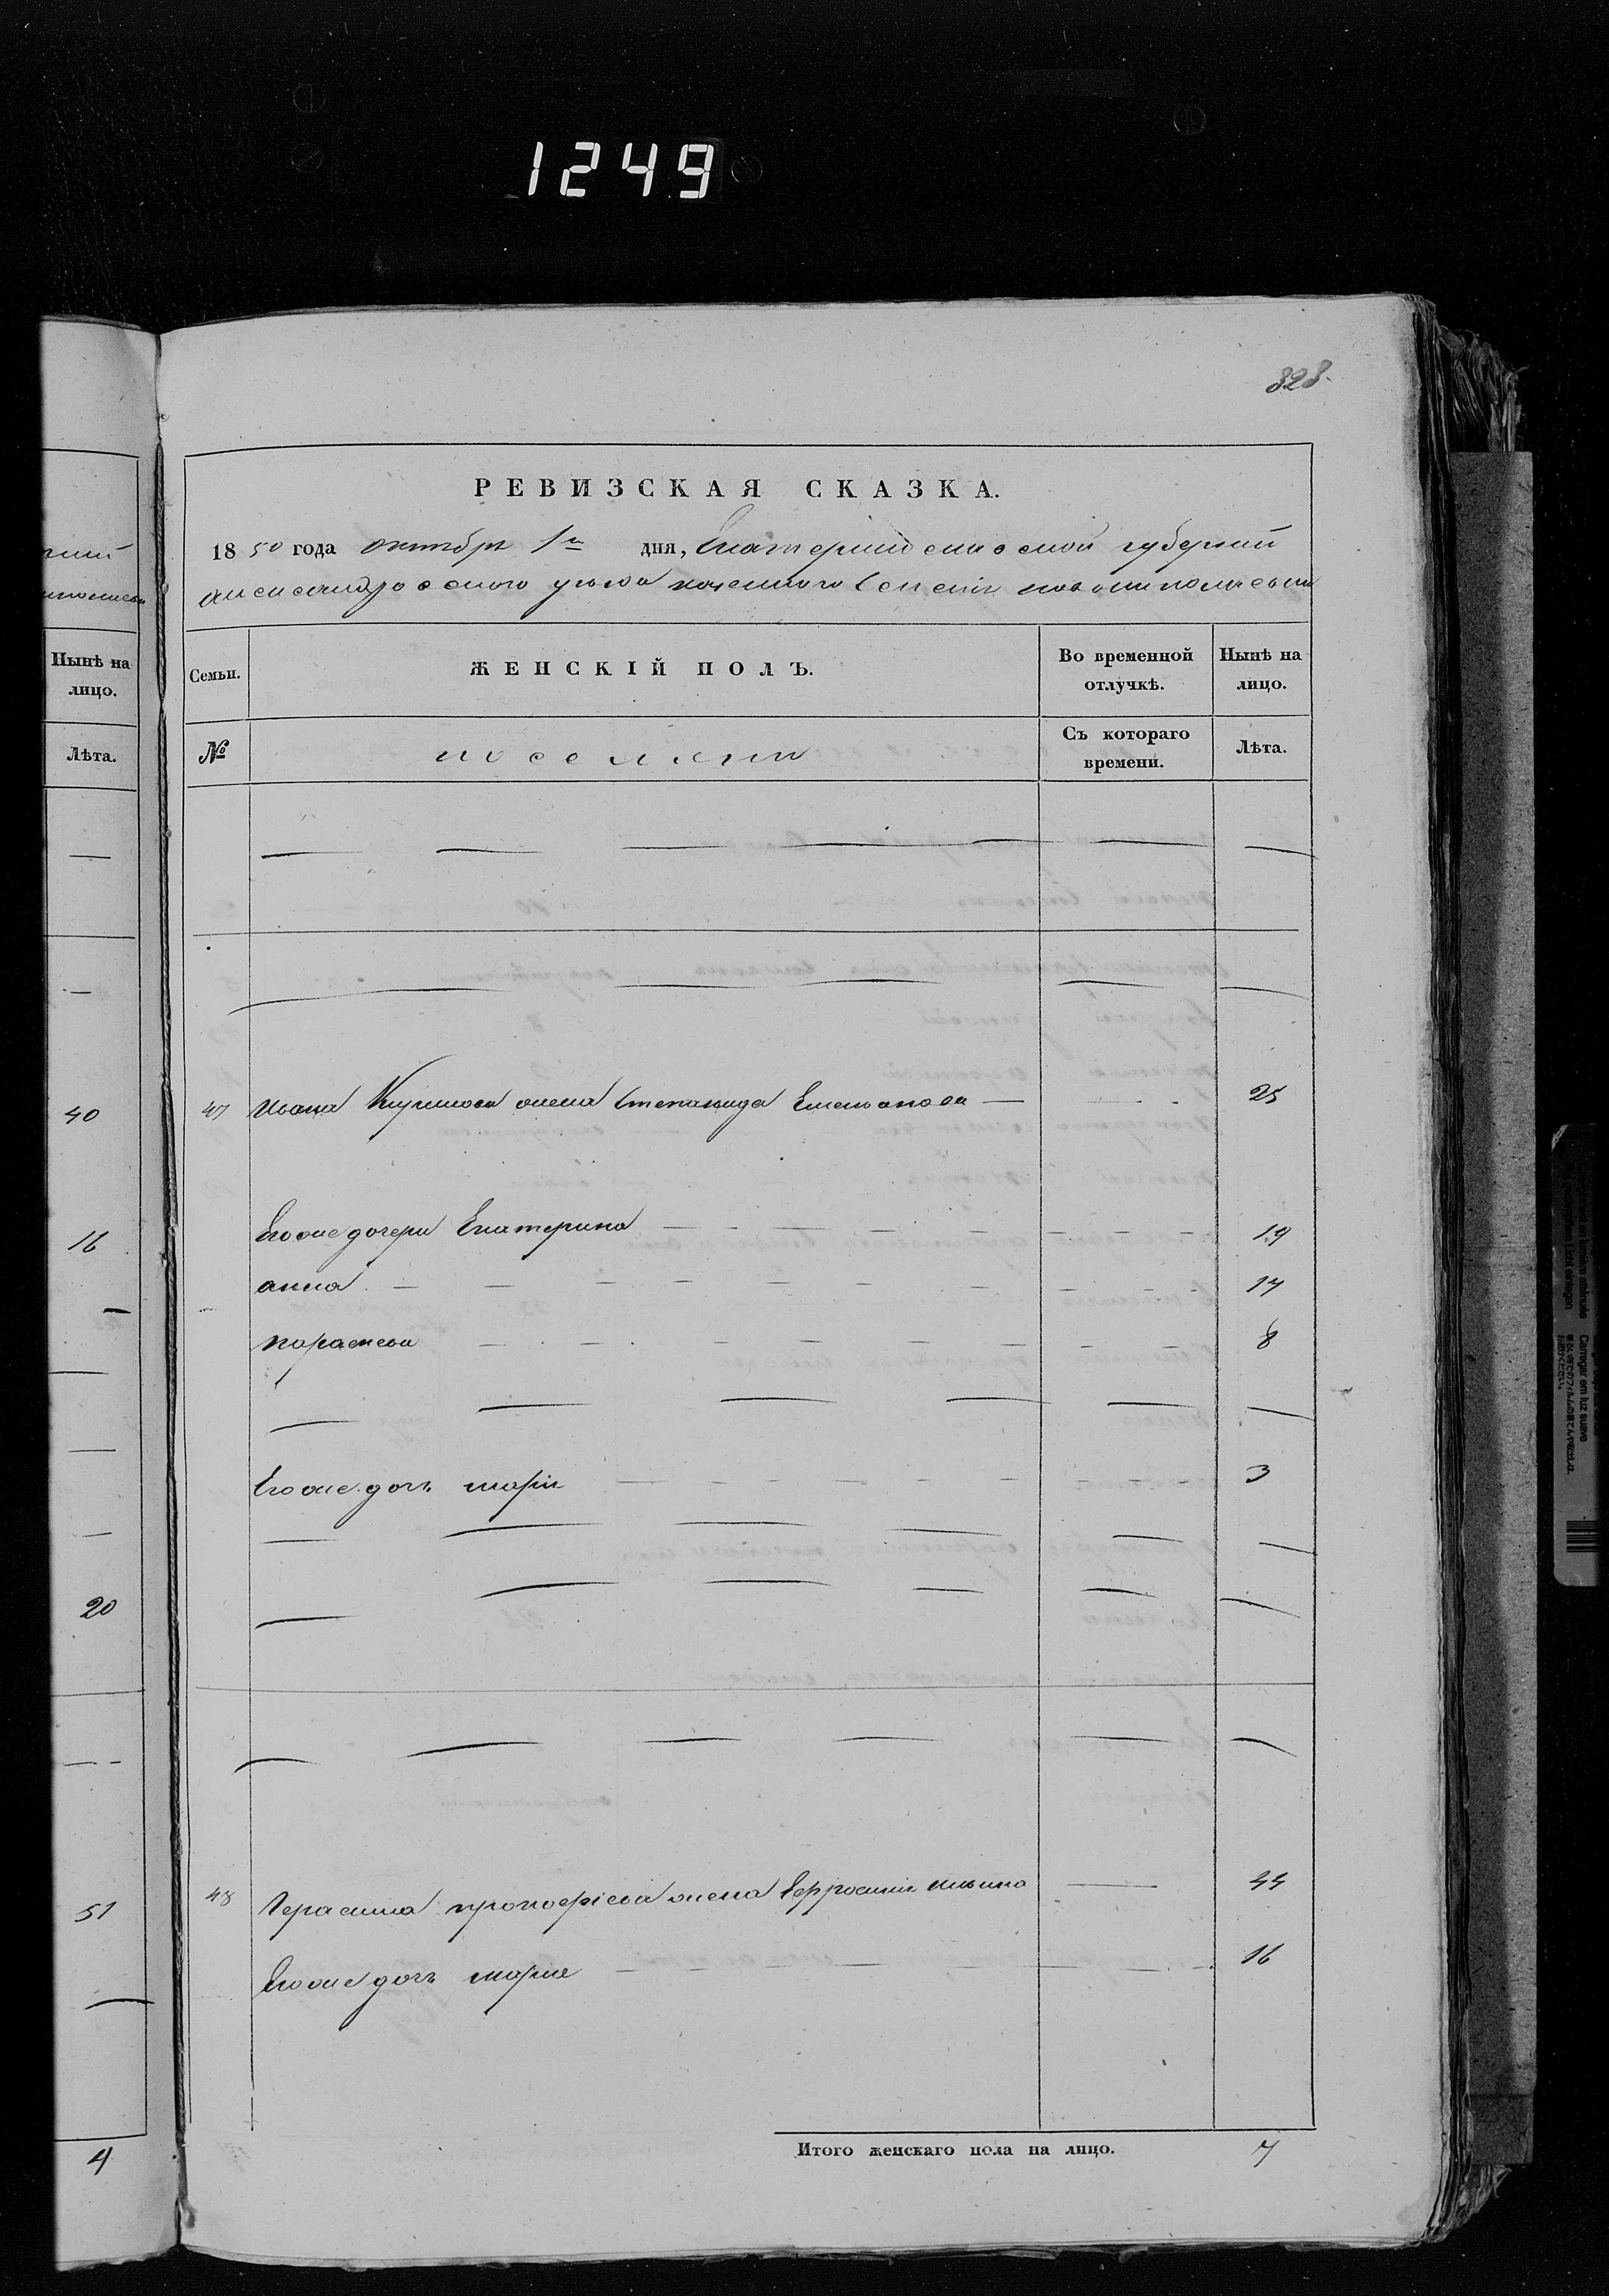 1249
828
РЕВИЗСКАЯ СКАЗКА.
1850 года октября 1го дня, Екатеринославской губерний
александровского уезда казенного Селенія новониколаевки
Нынѣ на лицо.
Семьи.
ЖЕНСКІЙ ПОЛЪ.
Во временной отлучкѣ.
Нынѣ на лицо.
Лѣта.
№
поселяне
Съ котораго времени.
Лѣта.
40
47 Ивана жена Степанида Емельянова 25
16
Егоже дочери Екатерина 19
анна 17
параскева 8
Егоже дочь марія 3
20
51
48 Герасима прокофіева жена Ефросинія ильина 44
Егоже дочь марія 16
4
Итого женскаго пола на лицо. 7